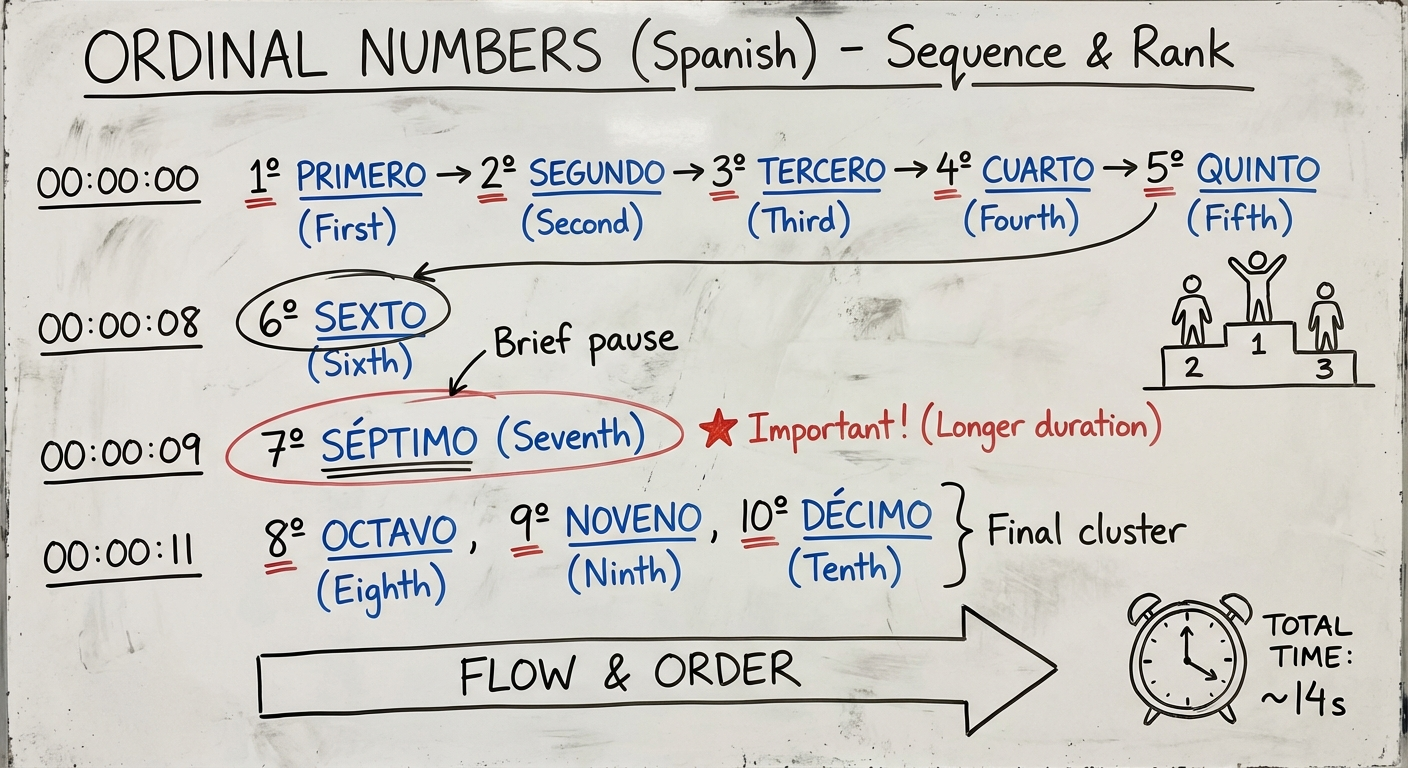 ORDINAL NUMBERS (Spanish) - Sequence & Rank
00:00:00 1º PRIMERO → 2º SEGUNDO → 3º TERCERO → 4º CUARTO → 5º QUINTO
(First) (Second) (Third) (Fourth) (Fifth)
00:00:08 6º SEXTO
(Sixth)
Brief pause
2 1 3
00:00:09 7º SÉPTIMO (Seventh) ★ Important! (Longer duration)
00:00:11 8º OCTAVO, 9º NOVENO, 10º DÉCIMO } Final cluster
(Eighth) (Ninth) (Tenth)
FLOW & ORDER
TOTAL
TIME:
~14s